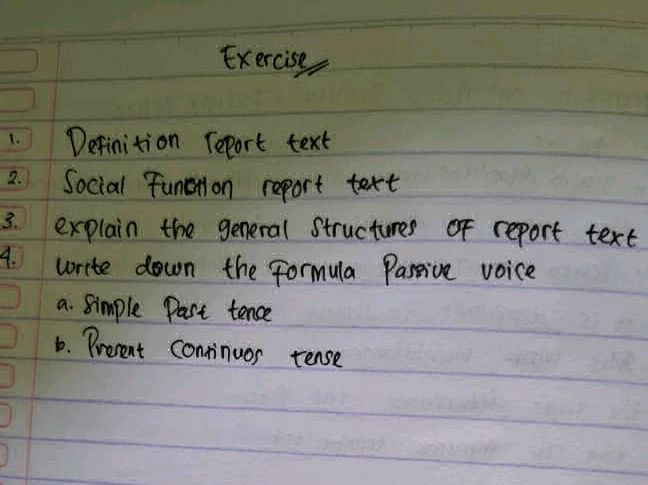 Exercise
1. Definition report text
2. Social Function report text
3. explain the general structures of report text
4. write down the formula Passive voice
a. Simple Past tence
b. Present Continuos tense